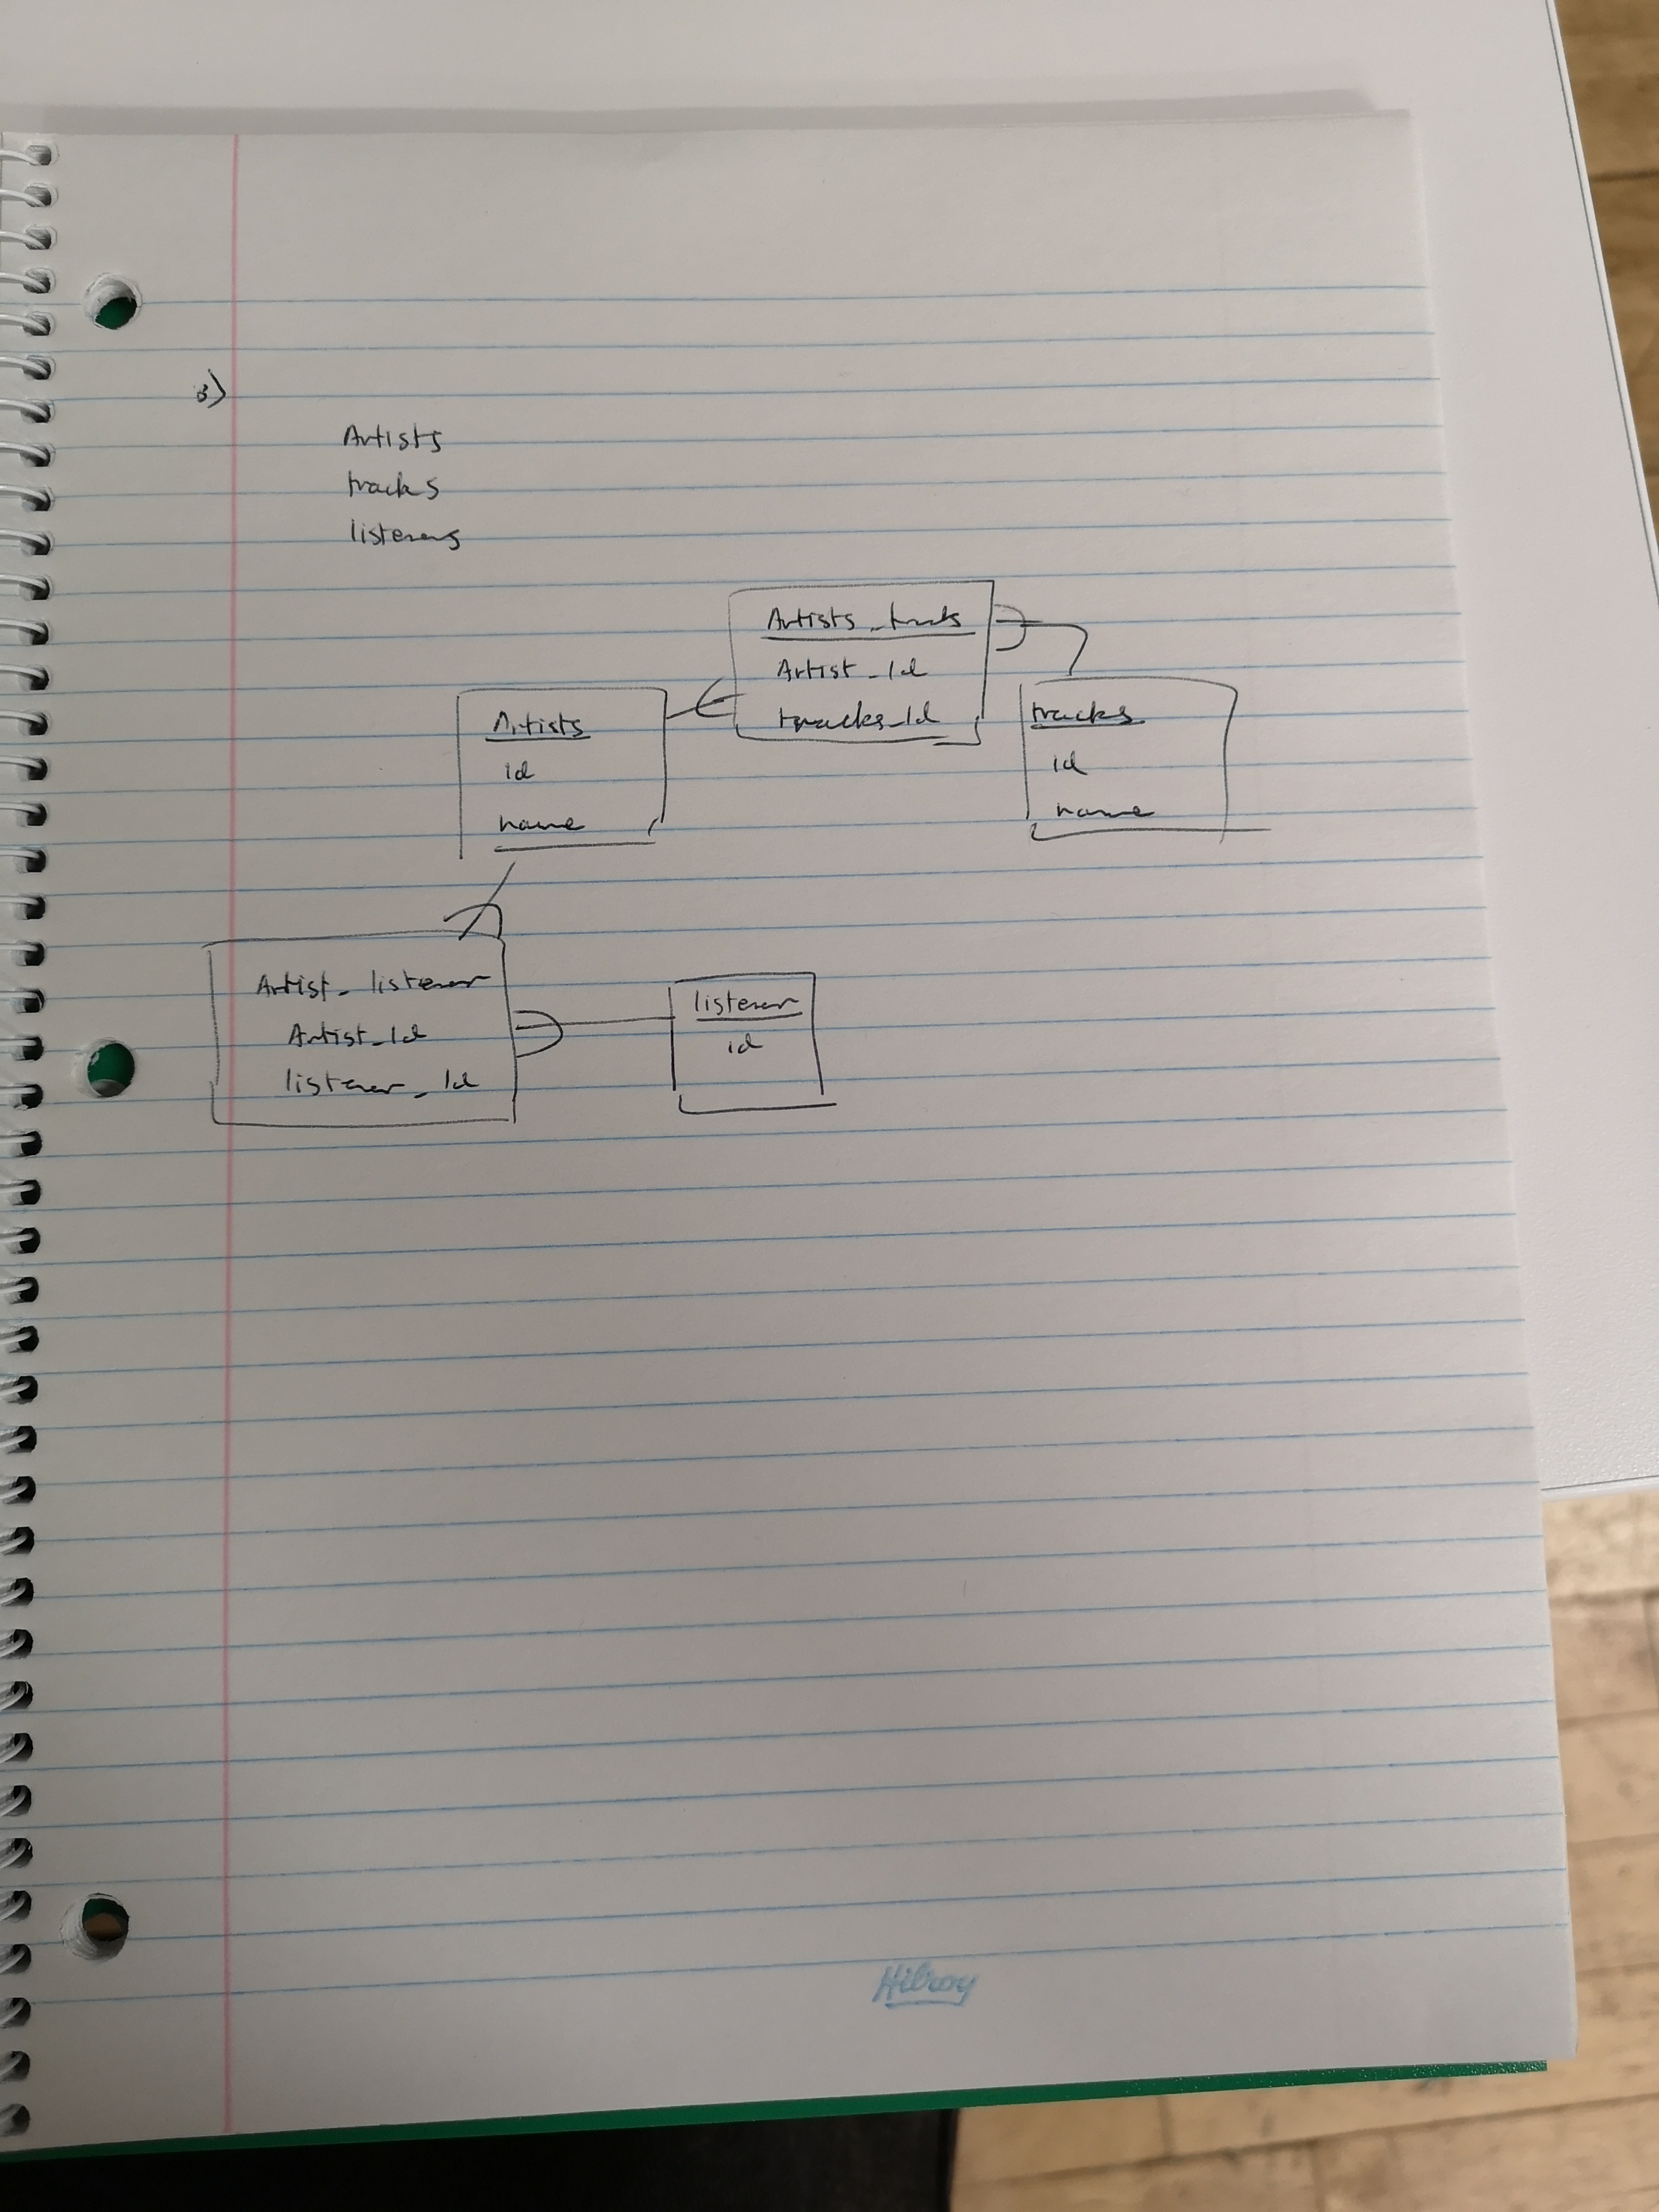 3)
Artists
tracks
listeners
Artists_tracks
Artist_Id
tracks_Id
Artists
id
name
tracks
id
name
Artist_listener
Artist_Id
listener_Id
listener
id
Hilroy